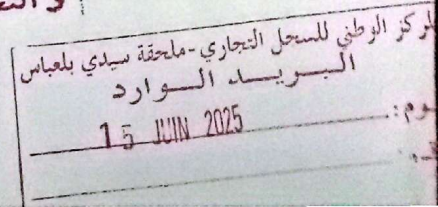 المركز الوطني للسجل التجاري - ملحقة سيدي بلعباس
البريد الوارد
15 JUIN 2025